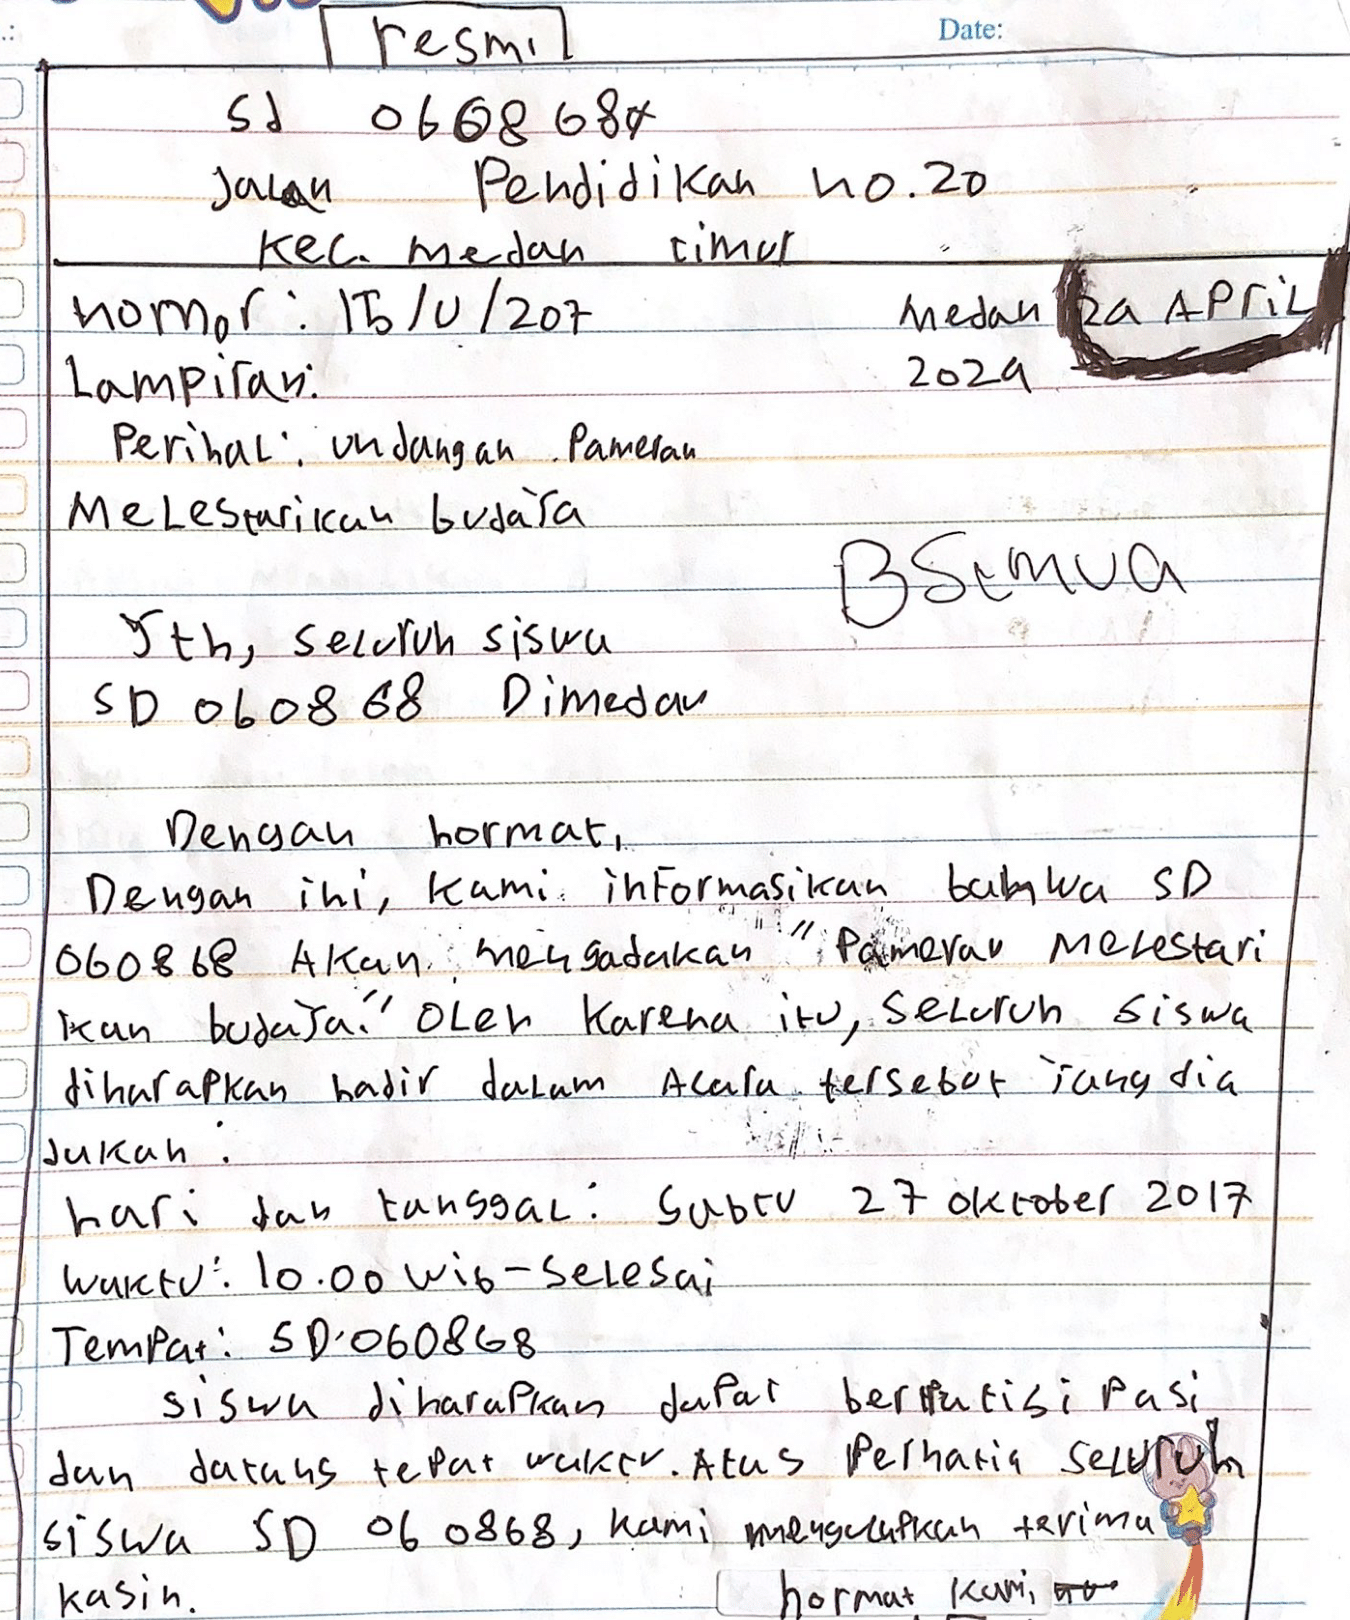 resmi
Date:
Sd 0668684
Jalan Pendidikan no.20
Kec. medan timur
nomor: 15/U/207
Medan 2a APRIL
Lampiran:
202a
Perihal: undangan Pameran
MeLestarikan budaya
BSemua
Yth, seluruh siswa
SD 060868 Dimedan
Dengan hormat,
Dengan ini, kami informasikan bahwa SD
060868 Akan mengadakan "Pameran Melestari
ikan budaya." Oleh karena itu, seluruh siswa
diharapkan hadir dalam Acara tersebut yang dia
jukan :
hari dan tanggal: Sabtu 27 oktober 2017
waktu: 10.00 wib-selesai
Tempat: SD.060868
siswa diharapkan dapat berpatisi Pasi
dan datang tepat waktu. Atas Perhatia seluruh
siswa SD 060868, kami mengucapkan terima
kasih.
hormat kami